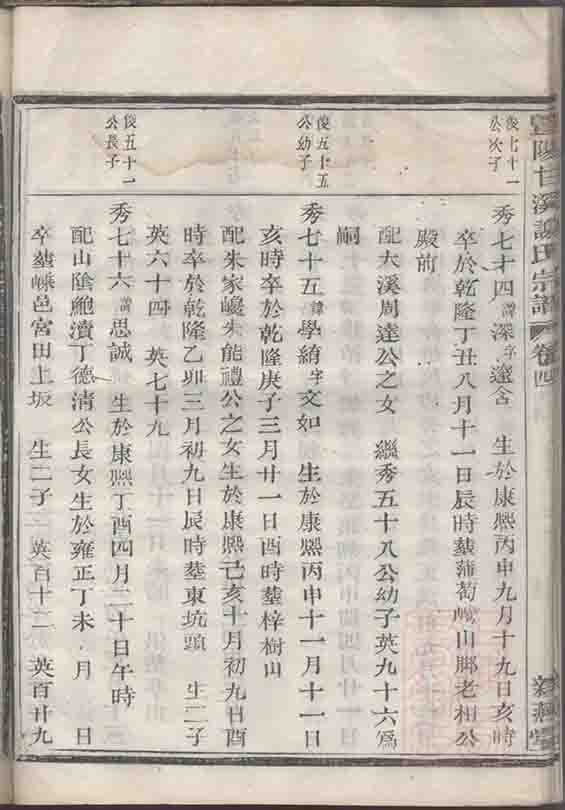 暨陽甘溪
氏宗譜
卷四
俊七十一
公次子
秀七十四諱深字邃含 生於康熙丙申九月十九日亥時
卒於乾隆丁丑八月十一日辰時塟蒲萄山脚老相公
殿前
配大溪周達公之女 繼秀五十八公幼子英九十六爲
嗣
俊五十五
公幼子
秀七十五諱學綃字文如 生於康熙丙申十一月十一日
亥時卒於乾隆庚子三月廿一日酉時塟梓樹山
配朱家巉朱能禮公之女生於康熙己亥十月初九日酉
時卒於乾隆乙卯三月初九日辰時塟東坑頭 生二子
英六十四 英七十九
俊五十一
公長子
秀七十六諱思誠 生於康熙丁酉四月二十日午時
配山陰鮑瀆丁德清公長女生於雍正丁未 月 日
卒塟嵊邑宮田上坂 生二子 英百十二 英百廿九